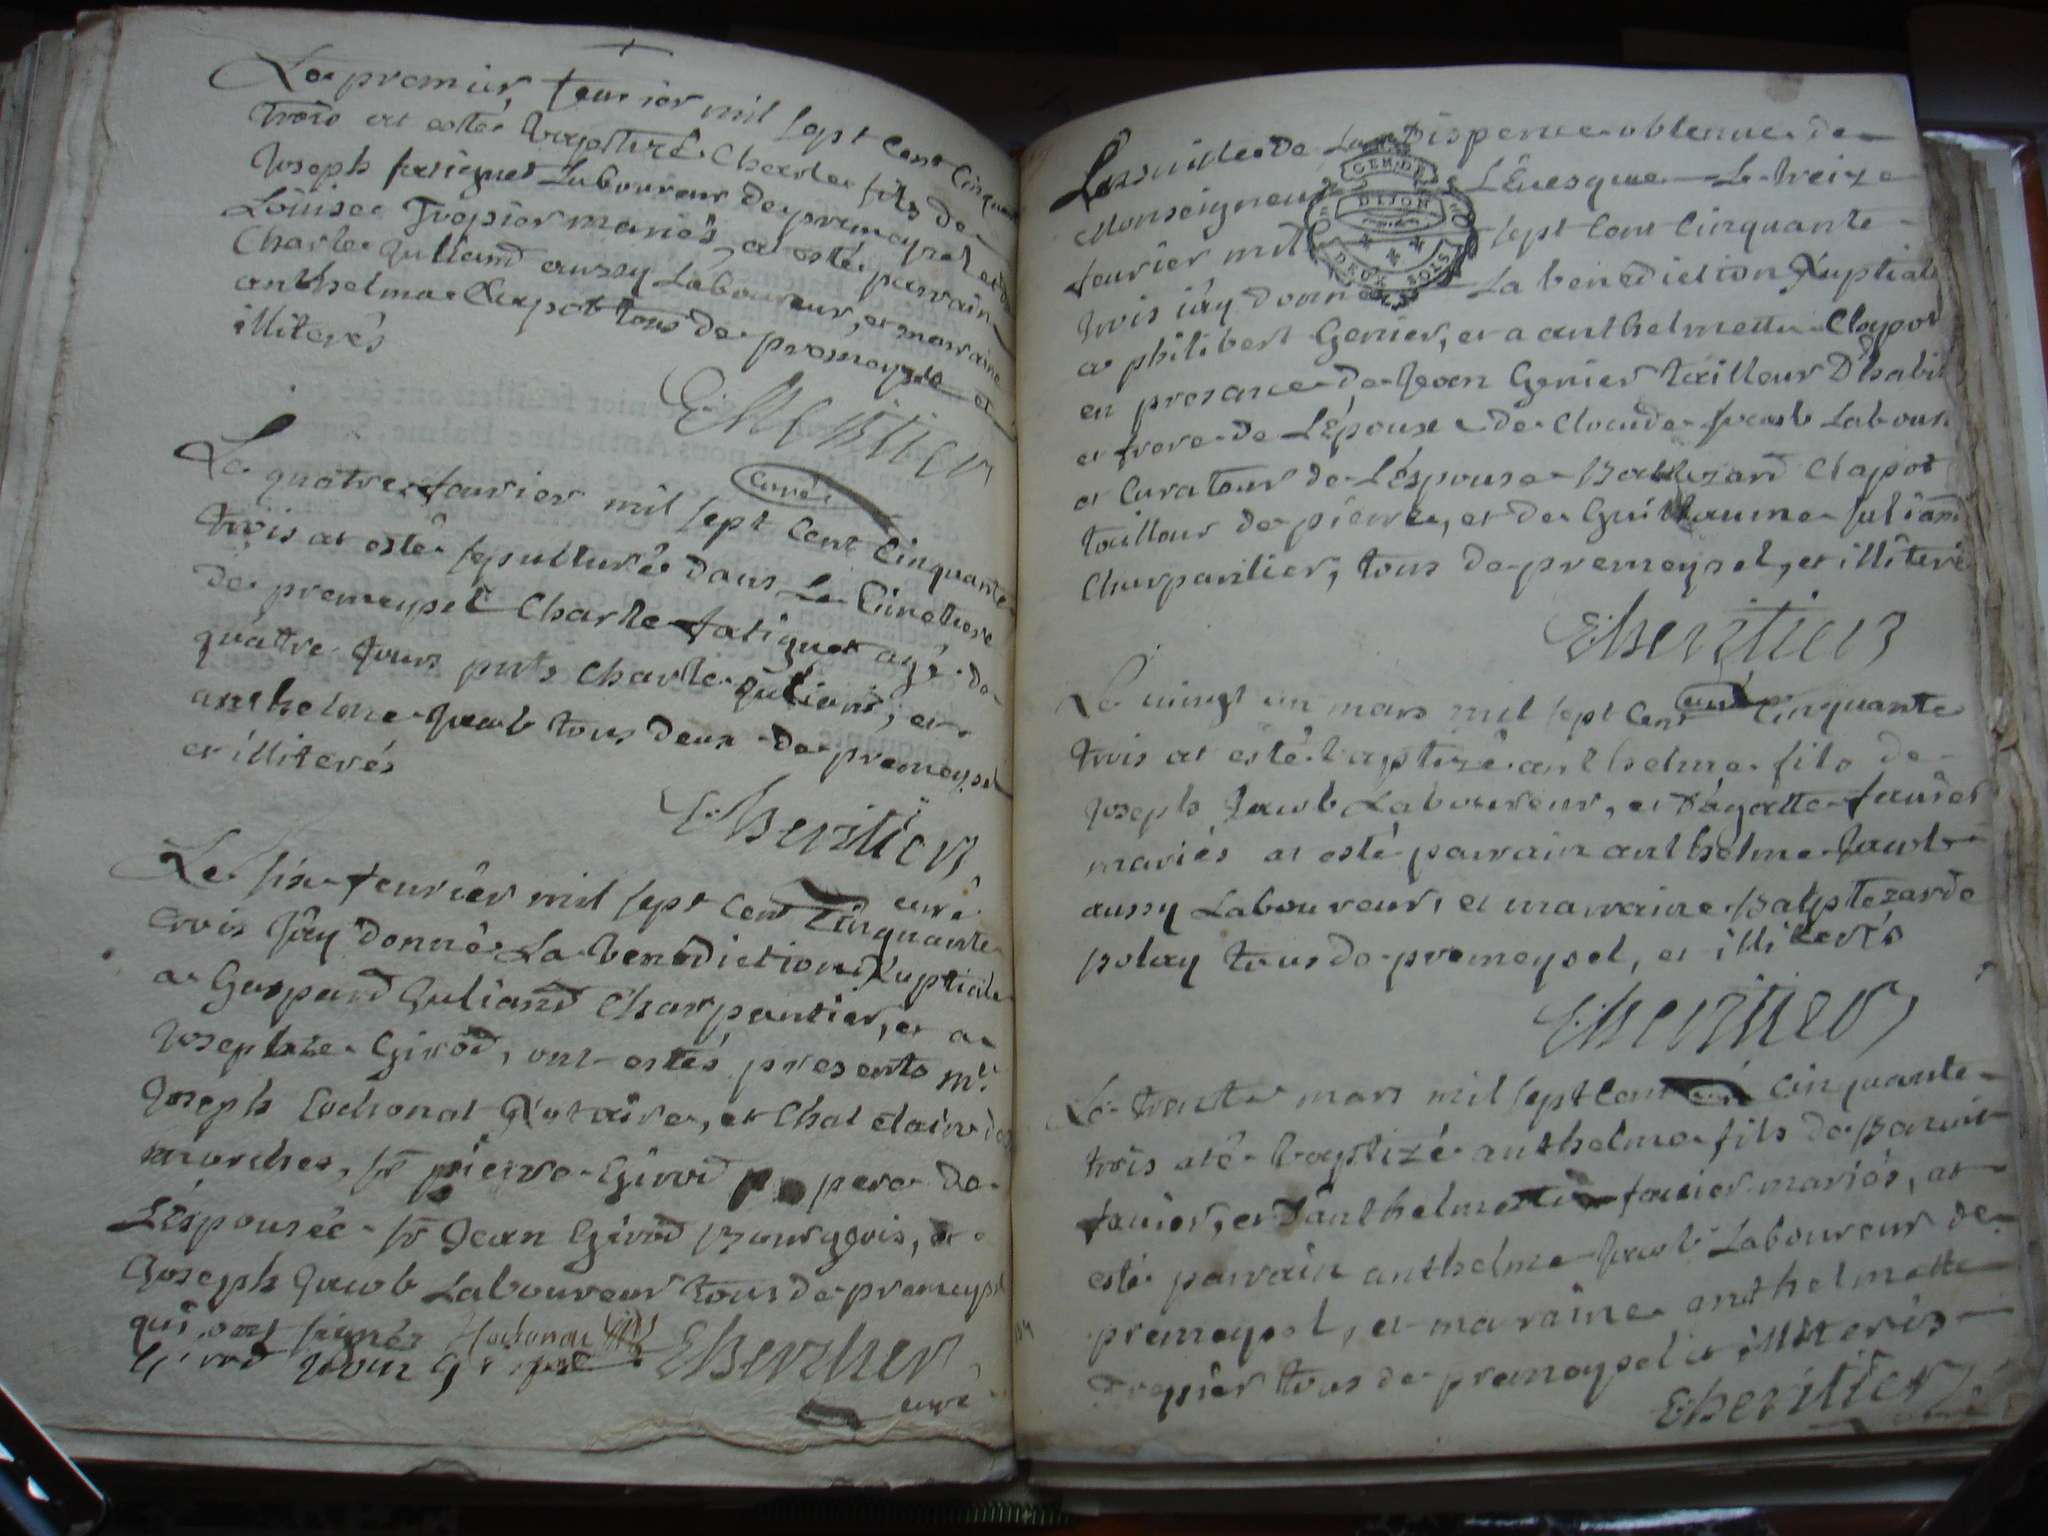 Le premier feurier mil sept cent cinquante
trois at esté baptizé Charle fils de
Joseph fatiguet Laboureur de premeyzel et de
Louise Tropier mariés, at esté parrain
Charle Juliand aussy Laboureur, et marraine
anthelma Clapot tous de premeyzel et
illiterés
EHeritier
curé
Le quatre feurier mil sept cent cinquante
trois at esté sepulturé dans Le Cimetiere
de premeyzel Charle fatiguet agé de
quatre jours pnts Charle Juliand, et
anthelme Jacob tous deux de premeyzel
et illiterés
Eheritier
curé
Le six feurier mil sept cent Cinquante
trois J'ay donné La benediction Nuptiale
a Gaspard Juliand Charpantier, et a
Josephte Girod, ont estés presents Mre
Joseph Cochonat Notaire, et Chatelain des
marches, sr pierre Girod pere de
L'épousée sr Jean Girod Bourgois, et
Joseph Jacob Laboureur tous de premeyzel
qui ont signés
Girod
Eheritier
curé
Ensuitte de La Dispence obtenue de
Monseigneur L'Euesque Le treize
GEN DE
DIJON
DEUX SOLS
feurier mil sept Cent Cinquante
trois j'ay donné La benediction Nuptiale
a philibert Genier, et a anthelmette Clapot
en presance de Jean Genier tailleur D'habit
et frere de L'Epoux de Claude Jacob Labour
et Curatour de L'Epouse Baltezard Clapot
tailleur de pierre, et de Guillaume Juliand
Charpantier, tous de premeyzel, et illiteré
Eheritier
curé
Le uingt un mars mil sept Cent Cinquante
trois at esté baptizé anthelme fils de
Joseph Jacob Laboureur, et d'agatte fauier
mariés at esté parrain anthelme Jacob
aussy Laboureur, et marraine Baptezarde
polay tous de premeyzel, et illiterés
Eheritier
curé
Le trante mars mil sept Cent Cinquante
trois até baptizé anthelme fils de Benoit
fauier, et d'anthelmette fauier mariés, at
esté parrain anthelme Jacob Laboureur de
premeyzel, et maraine anthelmette
tous de premeyzel et illiterés
Eheritier
curé